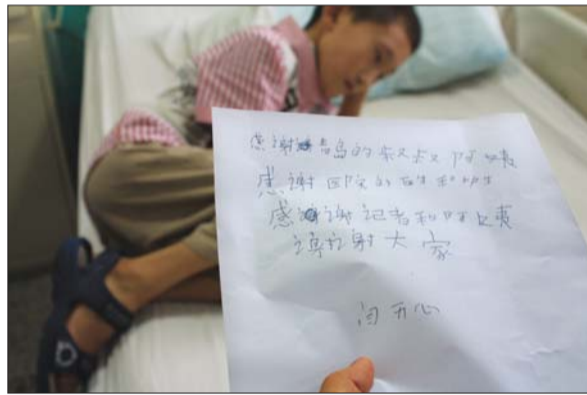 感谢青岛的叔叔阿姨
感谢医院的医生和护士
感谢记者和阿姨
谢谢大家
开心